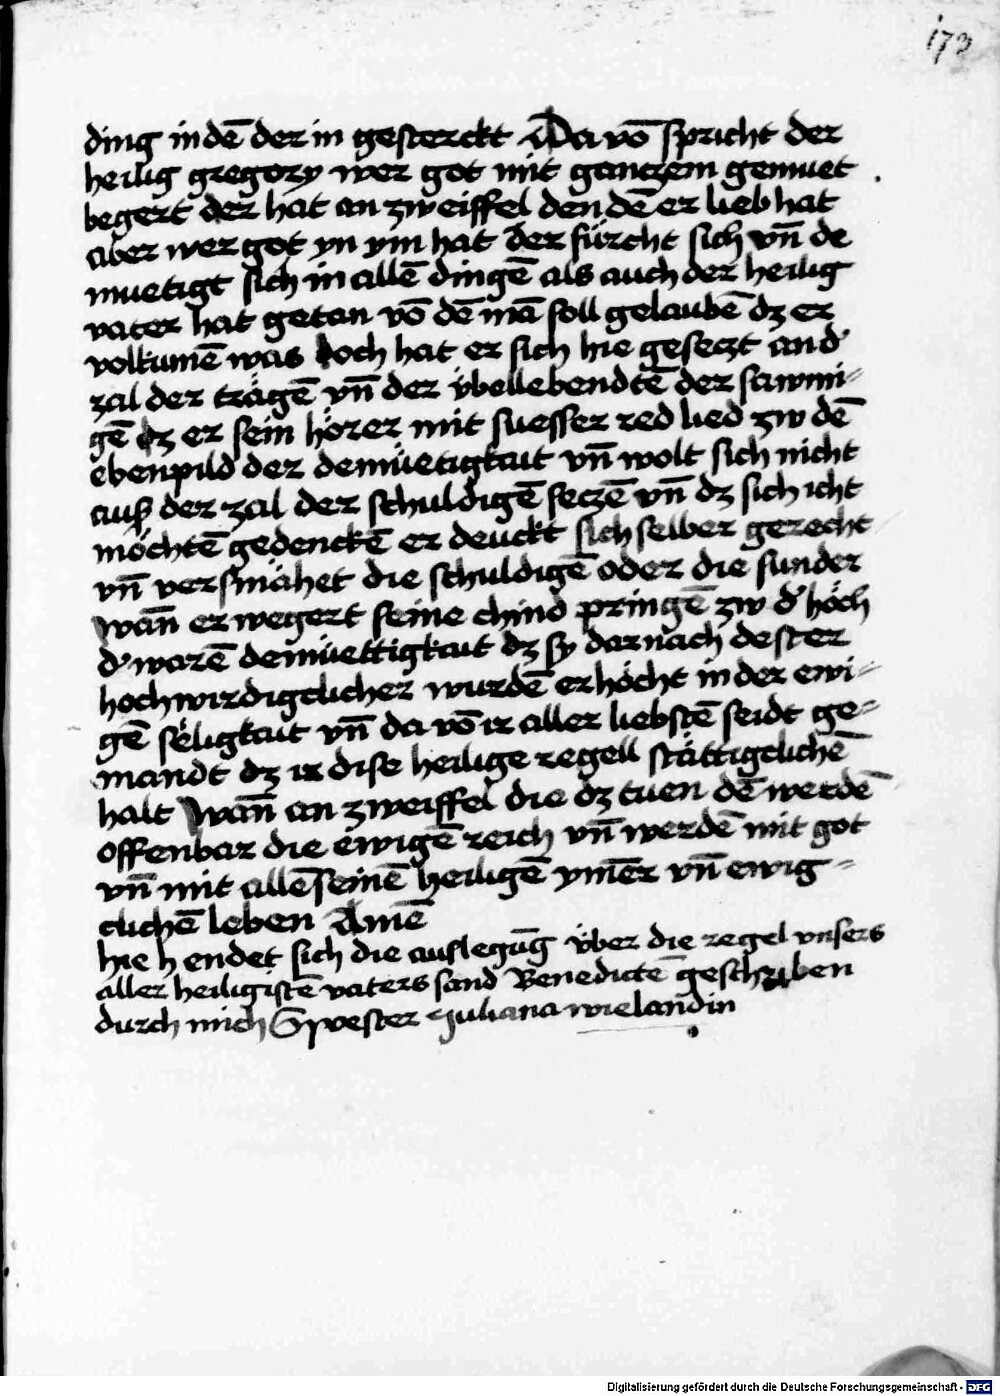 173
ding in dē der in gesterckt Da vō spricht der
heilig gregory wer got mit ganczem gemuet
begert der hat an zweiffel den dē er lieb hat
aber wer got yn ym hat der fürcht sich vn̄ de
muetigt sich in allē dingē als auch der heilig
vater hat getan vō dē mā soll gelaubē dz er
volkumē was doch hat er sich hie geseczt an d'
zal der trägē vn̄ der übellebendtē der sawmi=
gē dz er sein hörer mit suesser red lied zw dē
ebenpild der demüetigkait vn̄ wolt sich nicht
auß der zal der schuldigē seczē vn̄ dz sich icht
möchtē gedenckē er deuckt sich selber gerecht
vn̄ versmähet die schuldigē oder die sunder
wān er wegert seine chind pringē zw d' höch
d' warē demüettigkait dz sy darnach dester
hochwirdigclicher wurdē erhöcht in der ewi=
gē sēligkait vn̄ da vō ir aller liebstē seidt ge=
mandt dz ir dise heilige regell stättigclichē
halt wān an zweiffel die dz tuen dē werdē
offenbar die ewigē reich vn̄ werdē mit got
vn̄ mit allē seinē heiligē ymēr vn̄ ewig=
clichē leben Amē
hie h endet sich die auslegūg über die regel vnsers
aller heiligistē vaters sand Benedictē geschriben
durch mich Swester Juliana wielandin
Digitalisierung gefördert durch die Deutsche Forschungsgemeinschaft - DFG